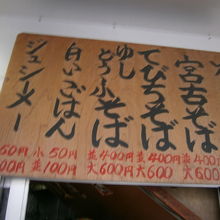 宮古そば
並400
大600
てびちそば
並400円
大600
ゆしとうふそば
並400円
大600円
白いごはん
小50円
並100円
ジューシーメー
50円
00円